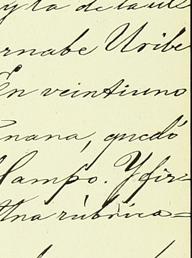 y ta de la ul
ernabe Uribe
En veintiuno
nana, quedó
Campo. Y fir-
Una rúbrica=